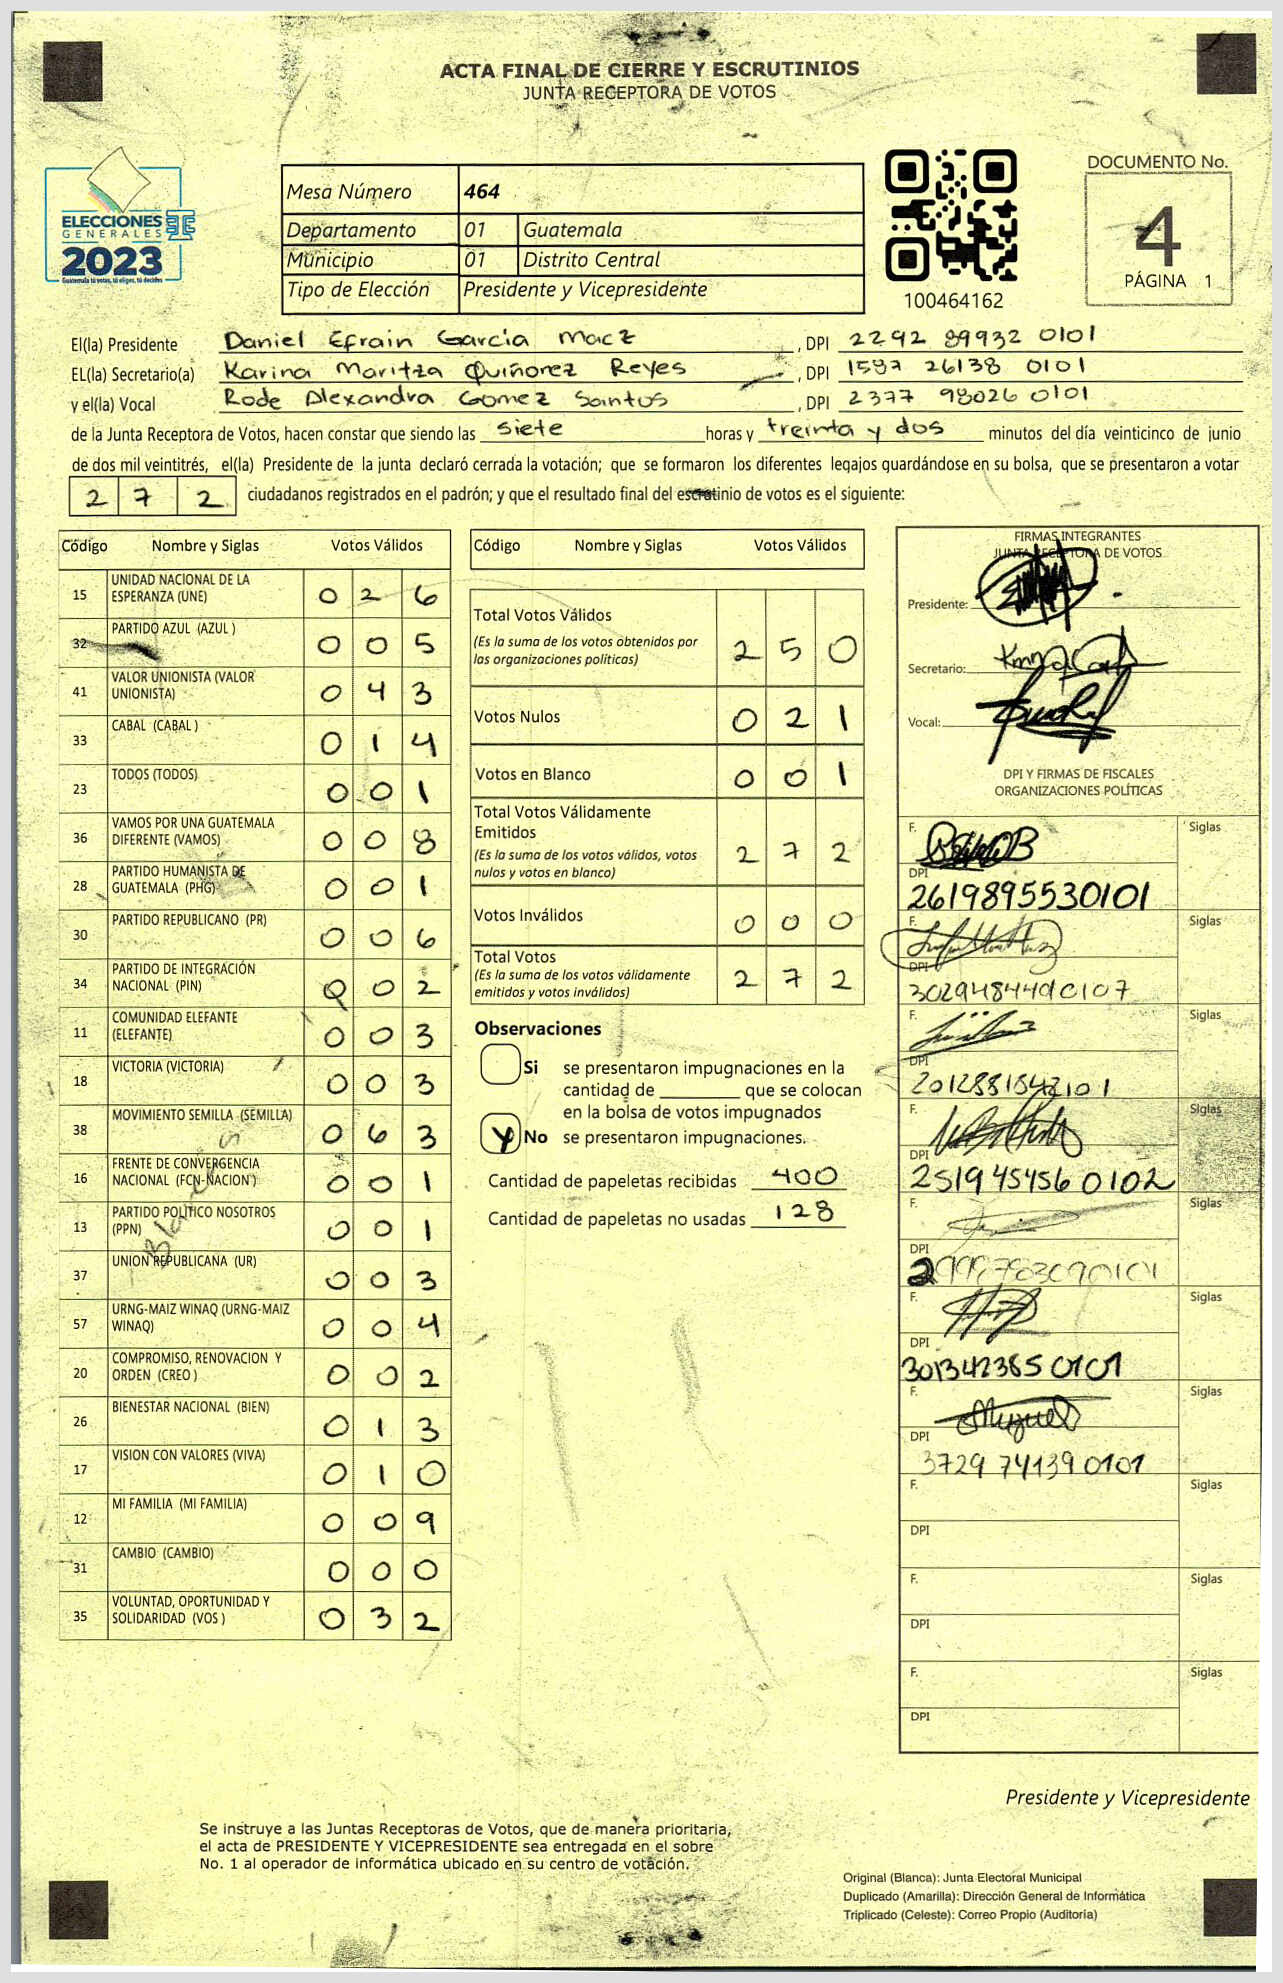 ACTA FINAL DE CIERRE Y ESCRUTINIOS
JUNTA RECEPTORA DE VOTOS
ELECCIONES
GENERALES
2023
Guatemala tú votas, tú eliges, tú decides
Mesa Número 464
Departamento 01 Guatemala
Municipio 01 Distrito Central
Tipo de Elección Presidente y Vicepresidente
100464162
DOCUMENTO No.
4
PÁGINA 1
El(la) Presidente Daniel Efrain García Macz , DPI 2292 89932 0101
EL(la) Secretario(a) Karina Maritza Quiñorez Reyes , DPI 1587 26138 0101
y el(la) Vocal Rode Alexandra Gomez Santos , DPI 2377 98026 0101
de la Junta Receptora de Votos, hacen constar que siendo las siete horas y treinta y dos minutos del día veinticinco de junio
de dos mil veintitrés, el(la) Presidente de la junta declaró cerrada la votación; que se formaron los diferentes legajos guardándose en su bolsa, que se presentaron a votar
2 7 2 ciudadanos registrados en el padrón; y que el resultado final del escrutinio de votos es el siguiente:
Código Nombre y Siglas Votos Válidos
15 UNIDAD NACIONAL DE LA ESPERANZA (UNE) 0 2 6
32 PARTIDO AZUL (AZUL ) 0 0 5
41 VALOR UNIONISTA (VALOR UNIONISTA) 0 4 3
33 CABAL (CABAL ) 0 1 4
23 TODOS (TODOS) 0 0 1
36 VAMOS POR UNA GUATEMALA DIFERENTE (VAMOS) 0 0 8
28 PARTIDO HUMANISTA DE GUATEMALA (PHG) 0 0 1
30 PARTIDO REPUBLICANO (PR) 0 0 6
34 PARTIDO DE INTEGRACIÓN NACIONAL (PIN) 0 0 2
11 COMUNIDAD ELEFANTE (ELEFANTE) 0 0 3
18 VICTORIA (VICTORIA) 0 0 3
38 MOVIMIENTO SEMILLA (SEMILLA) 0 6 3
16 FRENTE DE CONVERGENCIA NACIONAL (FCN-NACION ) 0 0 1
13 PARTIDO POLÍTICO NOSOTROS (PPN) 0 0 1
37 UNION REPUBLICANA (UR) 0 0 3
57 URNG-MAIZ WINAQ (URNG-MAIZ WINAQ) 0 0 4
20 COMPROMISO, RENOVACION Y ORDEN (CREO ) 0 0 2
26 BIENESTAR NACIONAL (BIEN) 0 1 3
17 VISION CON VALORES (VIVA) 0 1 0
12 MI FAMILIA (MI FAMILIA) 0 0 9
31 CAMBIO (CAMBIO) 0 0 0
35 VOLUNTAD, OPORTUNIDAD Y SOLIDARIDAD (VOS ) 0 3 2
Código Nombre y Siglas Votos Válidos
Total Votos Válidos
(Es la suma de los votos obtenidos por
las organizaciones políticas) 2 5 0
Votos Nulos 0 2 1
Votos en Blanco 0 0 1
Total Votos Válidamente
Emitidos
(Es la suma de los votos válidos, votos
nulos y votos en blanco) 2 7 2
Votos Inválidos 0 0 0
Total Votos
(Es la suma de los votos válidamente
emitidos y votos inválidos) 2 7 2
Observaciones
Si se presentaron impugnaciones en la
cantidad de que se colocan
en la bolsa de votos impugnados
No se presentaron impugnaciones.
Cantidad de papeletas recibidas 400
Cantidad de papeletas no usadas 128
FIRMAS INTEGRANTES
JUNTA RECEPTORA DE VOTOS
Presidente:
Secretario:
Vocal:
DPI Y FIRMAS DE FISCALES
ORGANIZACIONES POLÍTICAS
F. Siglas
DPI
2619895530101
F. Siglas
DPI
F. Siglas
DPI
F. Siglas
DPI
2519 45456 0102
F. Siglas
DPI
F. Siglas
DPI
301342385 0101
F. Siglas
Miguel
DPI
3729 74139 0101
F. Siglas
DPI
F. Siglas
DPI
F. Siglas
DPI
Presidente y Vicepresidente
Se instruye a las Juntas Receptoras de Votos, que de manera prioritaria,
el acta de PRESIDENTE Y VICEPRESIDENTE sea entregada en el sobre
No. 1 al operador de informática ubicado en su centro de votación.
Original (Blanca): Junta Electoral Municipal
Duplicado (Amarilla): Dirección General de Informática
Triplicado (Celeste): Correo Propio (Auditoría)